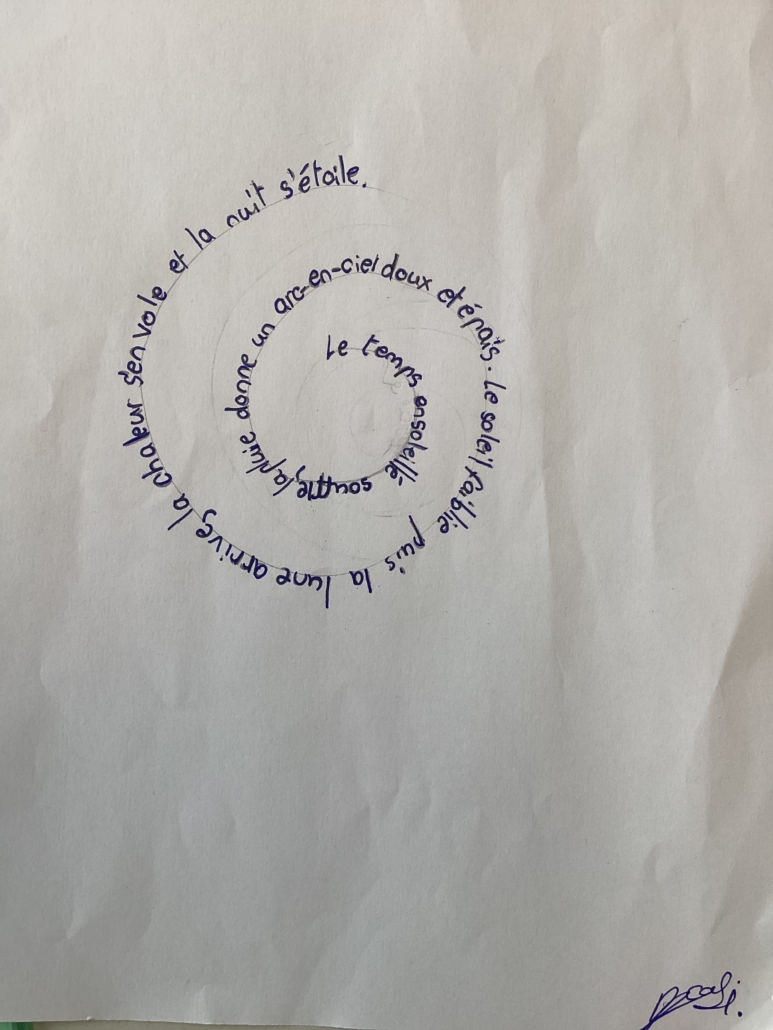 Le temps ensoleillé souffle, la pluie donne un arc-en-ciel doux et épais. Le soleil faiblie puis la lune arrive, la chaleur s'en vole et la nuit s'étoile.